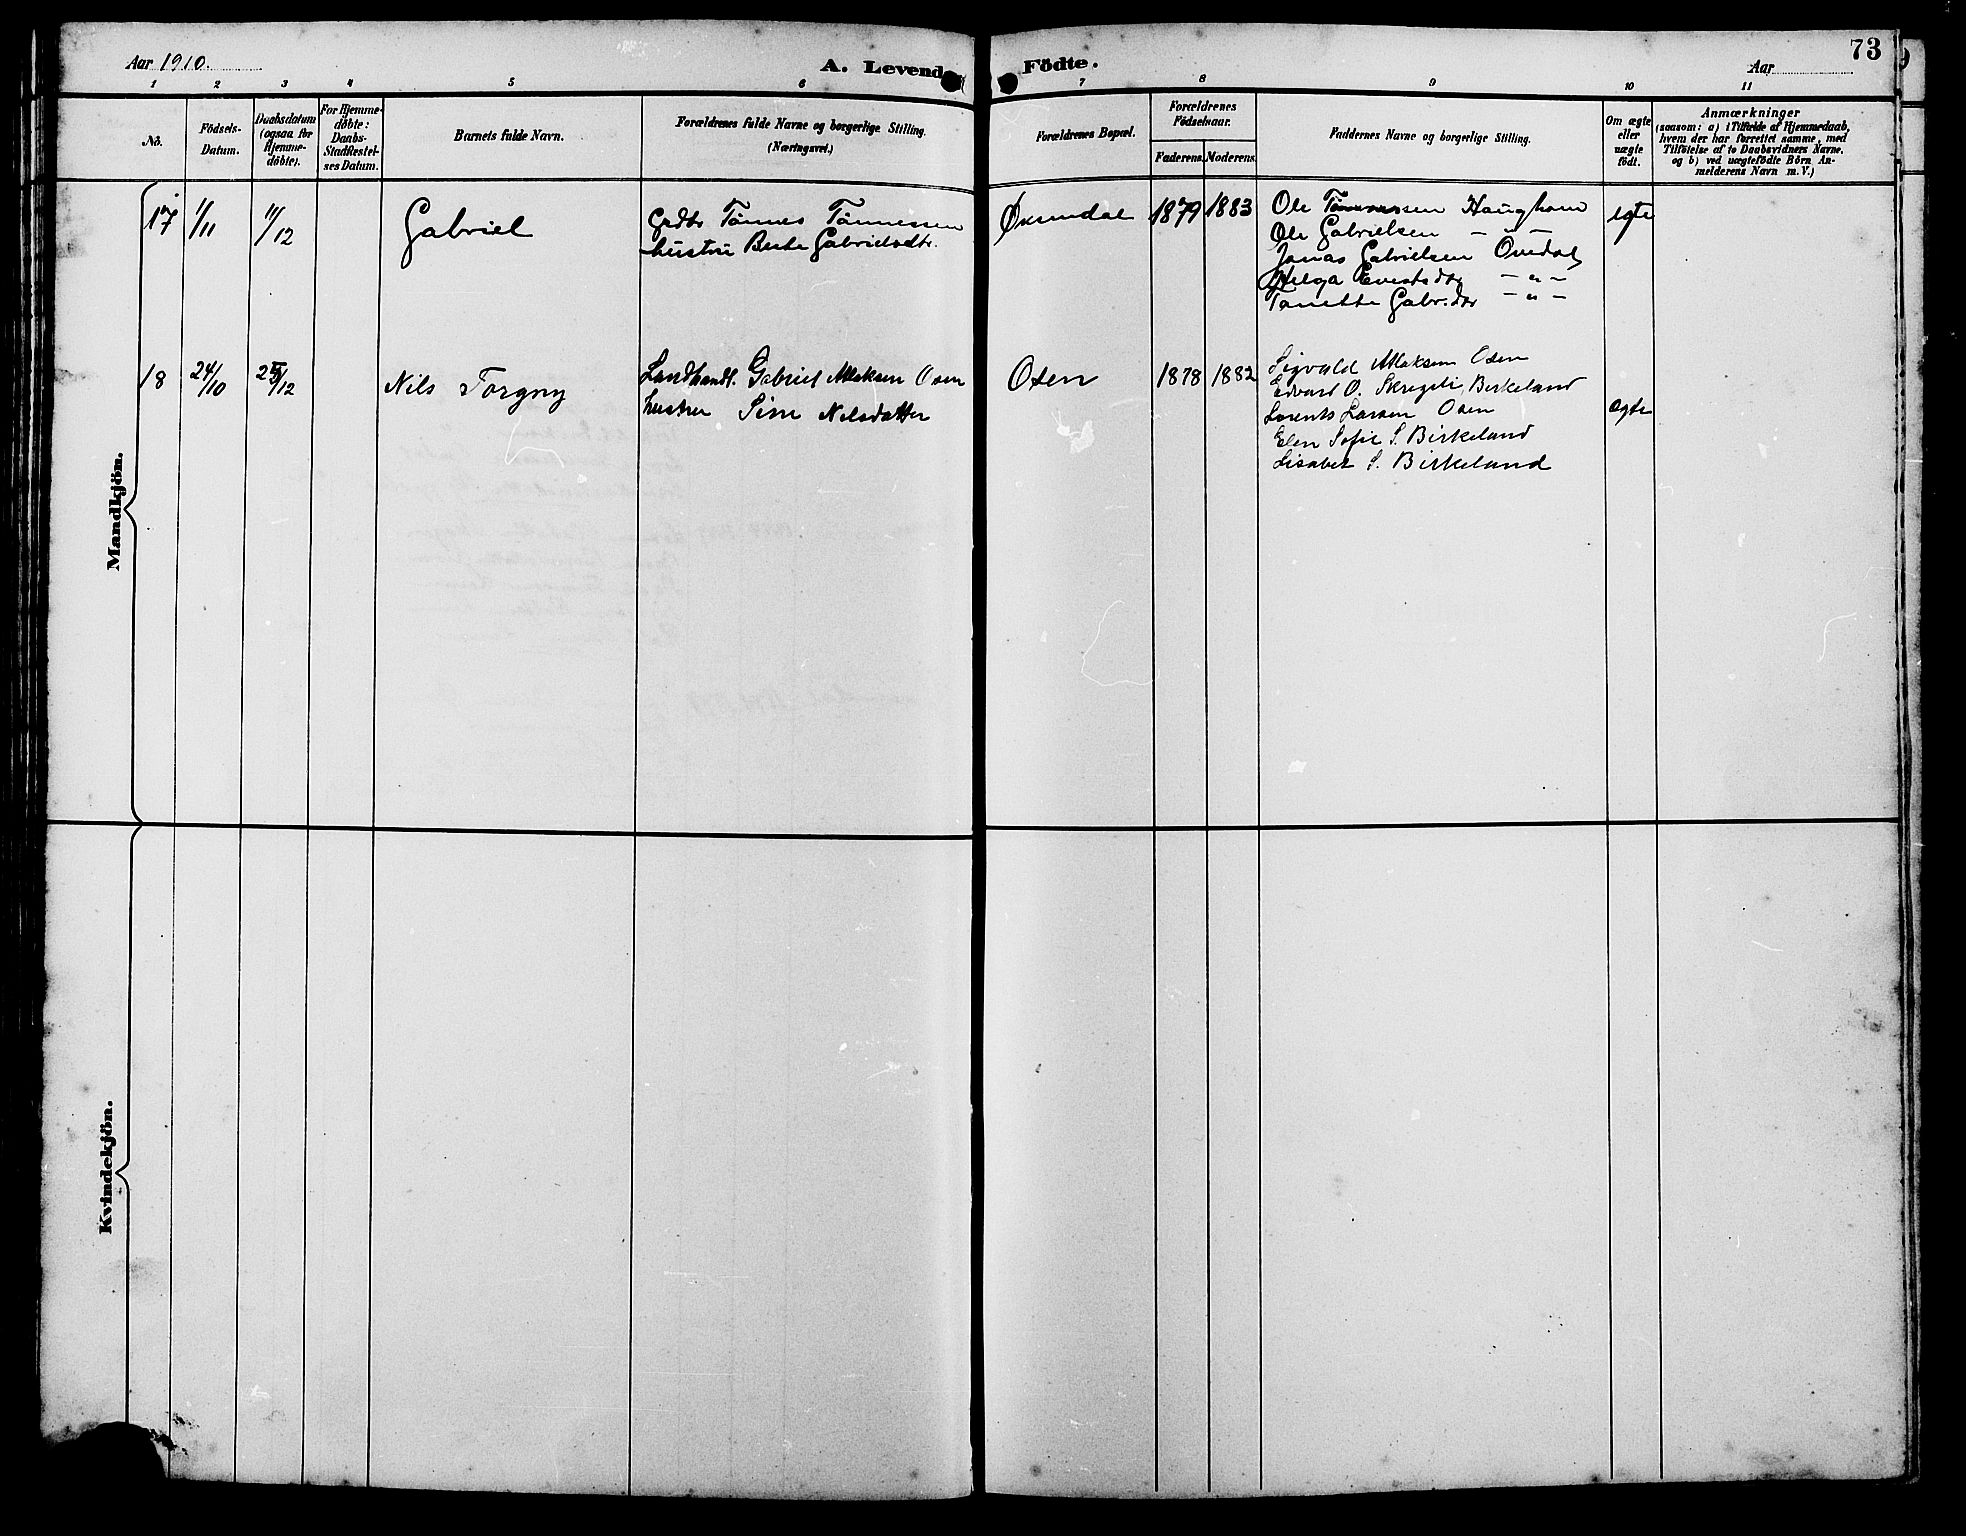 Aar 1910.
A. Levend
Födte.
Aar
73
1 2 3 4 5 6 7 8 9 10 11
No.
Födsels-
Datum.
Daabsdatum
(ogsaa for
Hjemme-
döbte).
For Hjemme-
döbte:
Daabs-
Stadfæstel-
ses Datum.
Barnets fulde Navn.
Forældrenes fulde Navne og borgerlige Stilling.
(Næringsvei.)
Forældrenes Bopæl.
Forældrenes
Födselsaar.
Faderens. Moderens.
Faddernes Navne og borgerlige Stilling.
Om ægte
eller
uægte
födt.
Anmærkninger
(saasom: a) i Tilfælde af Hjemmedaab,
hvem der har forrettet samme, med
Tilföielse af to Daabsvidners Navne.
og b) ved uægtefödte Börn An-
melderens Navn m. V.)
Mandkjön.
17
1/11
11/12
Gabriel
Grdbr Tønnes Tønnessen
hustru Berte Gabrielsdtr.
Øksendal
1879
1883
Ole Haughom
Ole Gabrielsen - " -
Jonas Gabrielsen Ovedal
Helga dtr - " -
Tanette Gabr.dtr - " -
egte
18
24/10
25/12
Nils Torgny
Landhandl. Gabriel Aklaksen Osen
hustru Sine Nilsdatter
Osen
1878
1882
Sigvald Aklaksen Osen
Edvard O. Skregeli, Birkeland
Lorents Larsen Osen
Elen Sofie S. Birkeland
Lisabet S. Birkeland
egte
Kvindekjön.